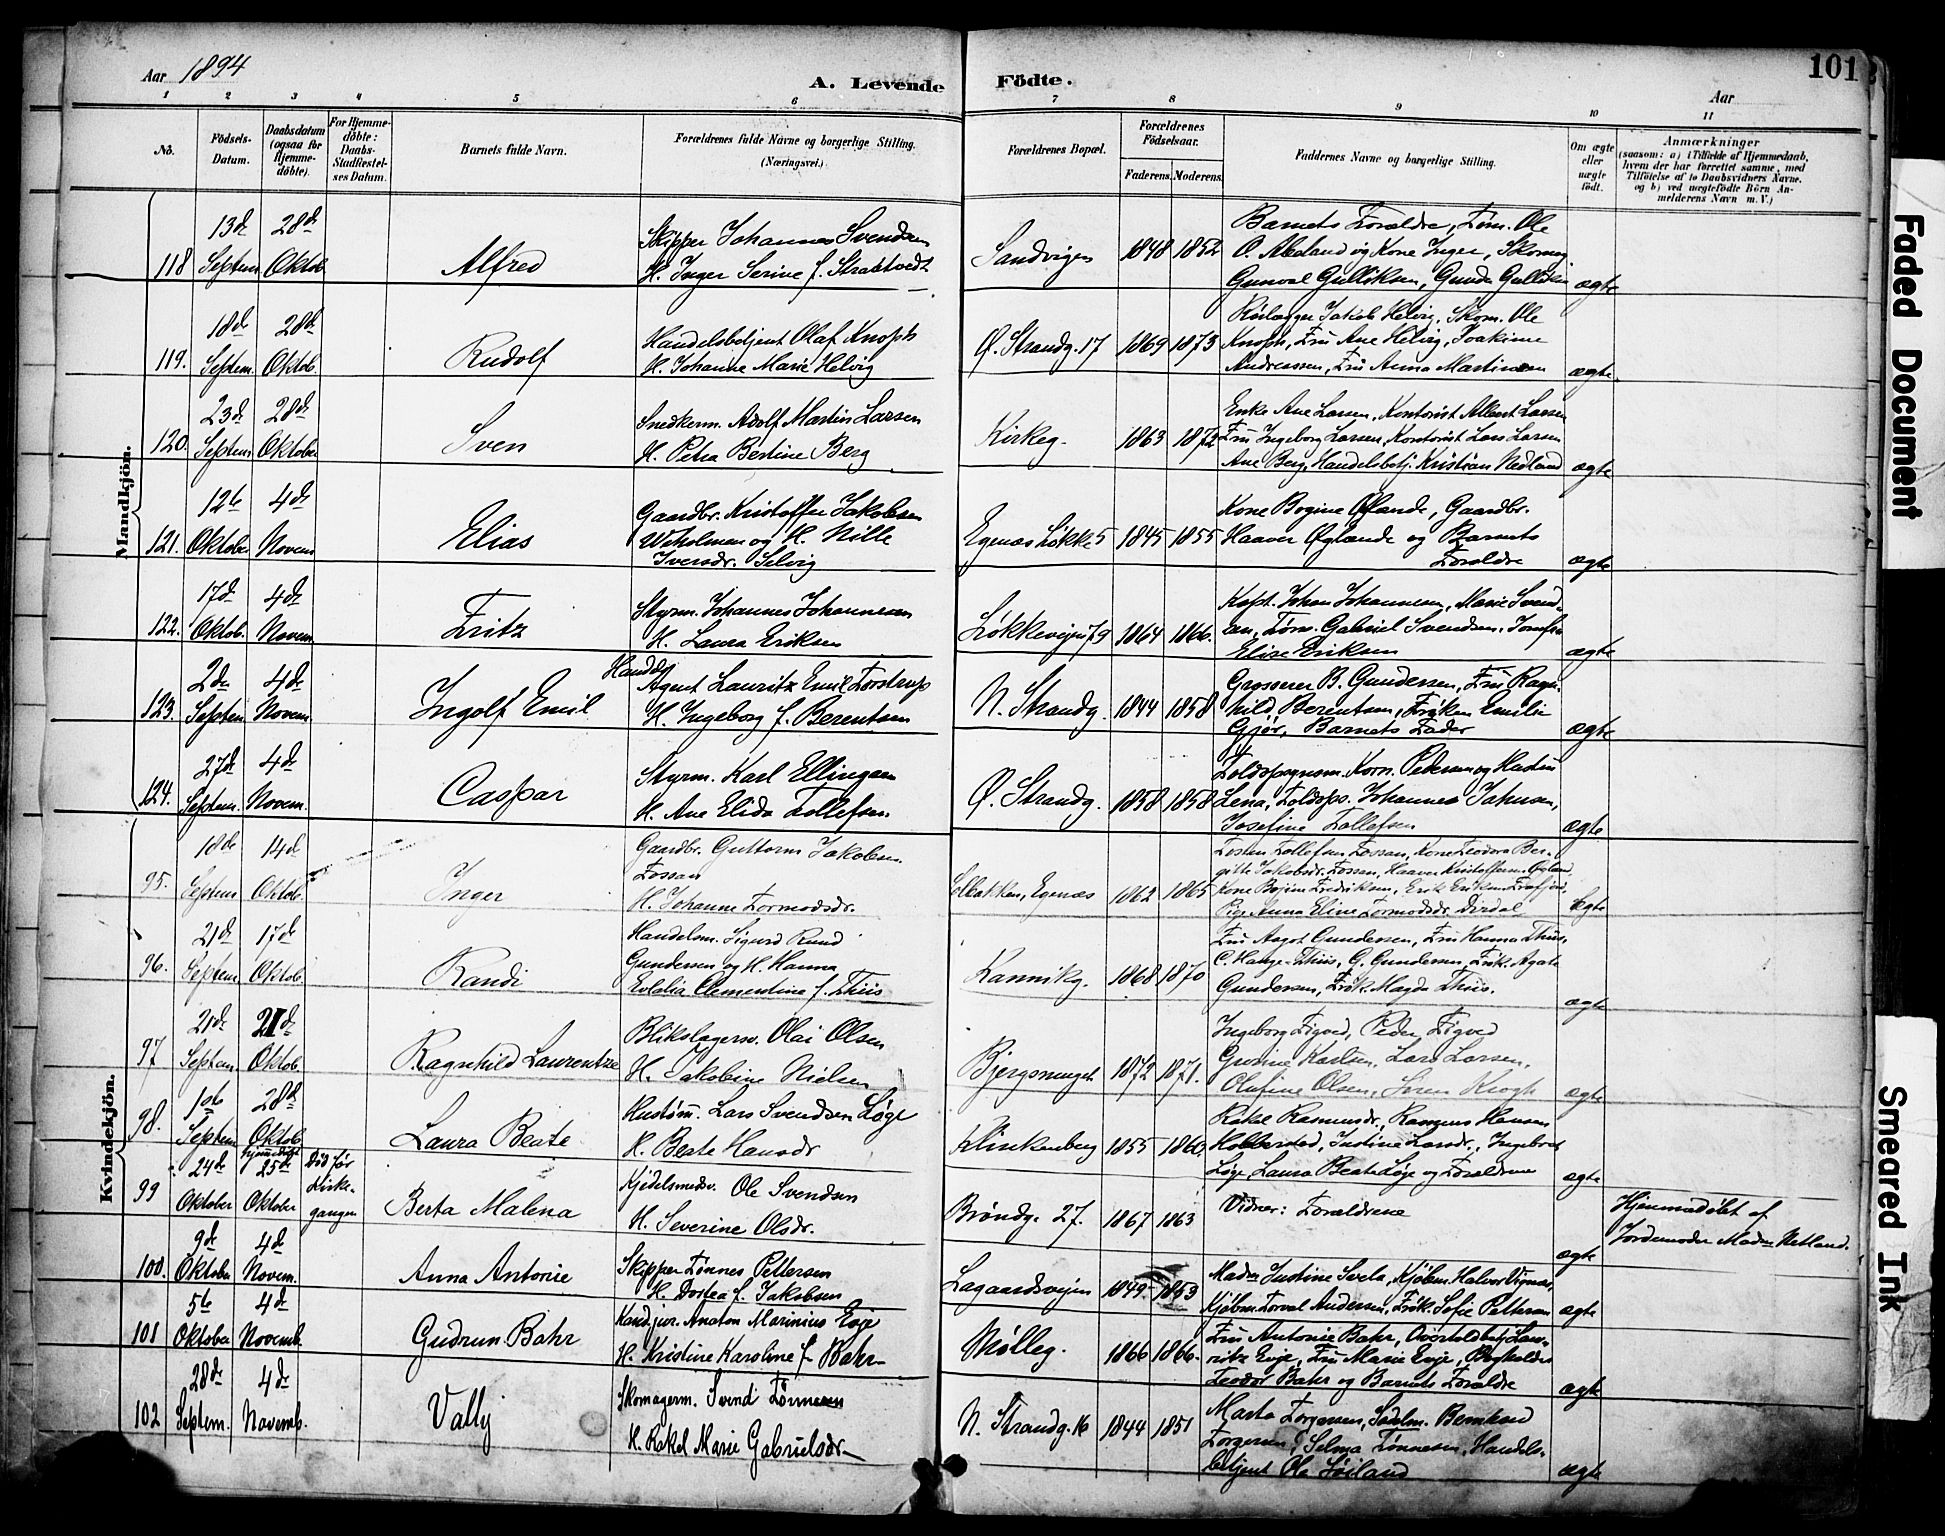 Aar 1894
A. Levende Födte.
101
Aar
1 2 3 4 5 6 7 8 9 10 11
Nö.
Födsels-Datum.
Daabsdatum (ogsaa for Hjemme-döbte).
For Hjemme-döbte: Daabs-Stadfæstel-ses Datum.
Barnets fulde Navn.
Forældrenes fulde Navne og borgerlige Stilling. (Næringsvei.)
Forældrenes Bopæl.
Forældrenes Födselsaar.
Faderens. Moderens.
Faddernes Navne og borgerlige Stilling.
Om ægte eller uægte födt.
Anmærkninger
(saasom: a) i Tilfælde af Hjemmedaab, hvem der har forrettet samme, med Tilföielse af to Daabsvidners Navne, og b) ved uægtefödte Börn An-melderens Navn m. V.)
Mandkjön.
118 13de Septem 28de Oktob Alfred
Skipper Johannes Svendsen
H. Inger Serine f. Stralstvedt
Sandvigen 1848 1852
Barnets Forældre, Tøm. Ole
O. Aaland og Kone Inger, Skomag
Gunval Gulliksen, Gunda Gulliksen ægte
119. 18de Septem. 28de Oktob. Rudolf
Handelsbetjent Olaf Knoph
H. Johanne Marie Helvig
Ø. Strandg. 17 1869 1873
Rørlægger Jakob Helvig, Skom. Ole
Knoph, Fru Ane Helvig, Joakime
Andreassen, Fru Anna Martinsen ægte.
120. 23de Septem 28de Oktober Sven
Snedkerm. Adolf Martin Larsen
H. Petra Bertine Berg
Kirkeg. 1863 1872
Enke Ane Larsen, Kontorist Albert Larsen
Fru Ingeborg Larsen, Kontorist Lars Larsen
Ane Berg, Handelsbetj. Kristian Nedland ægte
121. 12te Oktober 4de Novem Elias
Gaardbr. Kristoffer Jakobsen
Waholmen og H. Nille
Iversdr. Selvig
Egenæs Løkke 5 1845 1855
Kone Bogine Øglande, Gaardbr.
Haaver Øglande og Barnets
Forældre ægte
122. 17de Oktob. 4de Novem. Fritz
Styrm. Johannes Johannesen
H. Laura Eriksen
Løkkeveien 79 1864 1866.
Kapt. Johan Johannesen, Marie Svend-
sen, Tøm. Gabriel Svendsen, Jomfru
Elise Eriksen ægte
123. 2den Septem 4de Novem. Ingolf Emil
Handels
Agent Lauritz Emil Torstrup
H. Ingeborg f. Berentsen
N. Strandg. 1844 1858
Grosserer B. Gundersen, Fru Ragn-
hild Berentsen, Frøken Emilie
Gjør, Barnets Fader ægte
124. 27de Septem. 4de Novem. Caspar
Styrm. Karl Ellingsen
H. Ane Elida Tollefsen
Ø. Strandg. 1858 1858
Toldopsynsm. Korn. Pedersen og Hustru
Lena, Toldops. Johannes Jahnsen,
Josefine Tollefsen ægte
Kvindekjön.
95. 18de Septem 14de Oktob. Inger
Gaardbr. Guttorm Jakobsen
Fossan
H. Johanne Tormodsdr.
Solbakken, Egenæs 1862 1865
Tosten Tollefsen Fossan, Kone Teodora Ber-
gitte Jakobsdr. Fossan, Haaver Kristoffersen Øgland,
Kone Bojin Fredriksen, Erik Eriksen Frafjord,
Pige Anna Eline Tormodsdr. Dirdal ægte
96. 21de Septem 17de Oktob. Randi
Handelsm. Sigurd Rund
Gundersen og H. Hanna
Evlalia Clementine f. Thiis
Kannikg. 1868 1870
Fru Aagot Gundersen, Fru Hanna Thiis,
C. Hauge-Thiis, G. Gundersen, Frøk. Agate
Gundersen, Frøk. Magda Thiis. ægte
97 21de Septem. 21de Oktob. Ragnhild Laurentze
Blikslagersv. Olai Olsen
H. Jakobine Nielsen
Bjergsmuget 1872 1871.
Ingeborg Sigved, Peder Sigved
Grosine Karlsen, Lars Larsen,
Olufine Olsen, Søren Krogh ægte
98. 1ste Septem 28de Oktob. Laura Beate
Hustøm. Lars Svendsen Løge
H. Beate Hansdr
Klinkenberg 1855 1860.
Rakel Rasmusdr., Rasmus Hansen
Hobberstad, Justine Larsdr., Ingeborg
Løge, Laura Beate Løge og Forældrene ægte
99 24de Oktober hjemmedøbt 25de Oktober Død før Kirke-gangen Berta Malena
Kjedelsmedsv. Ole Svendsen
H. Severine Olsdr.
Brøndg. 27. 1867 1863
Vidner: Forældrene ægte
Hjemmedøbt af
Jordemoder Madm Netland.
100. 9de Oktober 4de Novem. Anna Antonie
Skipper Tønnes Pettersen
H. Dortea f. Jakobsen
Lagaardsveien 1849 1853
Madm Justine Svela, Kjøbm. Halvor Vignæs,
Kjøbm. Torval Andersen, Frøk. Sofie Pettersen ægte
101 5te Oktober 4de Novemb. Gudrun Bahr
Kand. jur. Anaton Marinius Eeje
H. Kristine Karoline f. Bahr
Mølleg. 1866 1866.
Fru Antonie Bahr, Overtoldbetj. Lau-
ritz Eeje, Fru Marie Eeje, Bogholder
Teodor Bahr og Barnets Forældre ægte
102 28de Septem. 4de Novemb. Vally
Skomagerm. Svend Tønnesen
H. Rakel Marie Gabrielsdr.
N. Strandg. 16 1844 1851
Marta Torgersen, Sadelm. Berntsen
Torgersen, Selma Tønnesen, Handels-
betjent Ole Høiland ægte
Faded Document
Smeared Ink